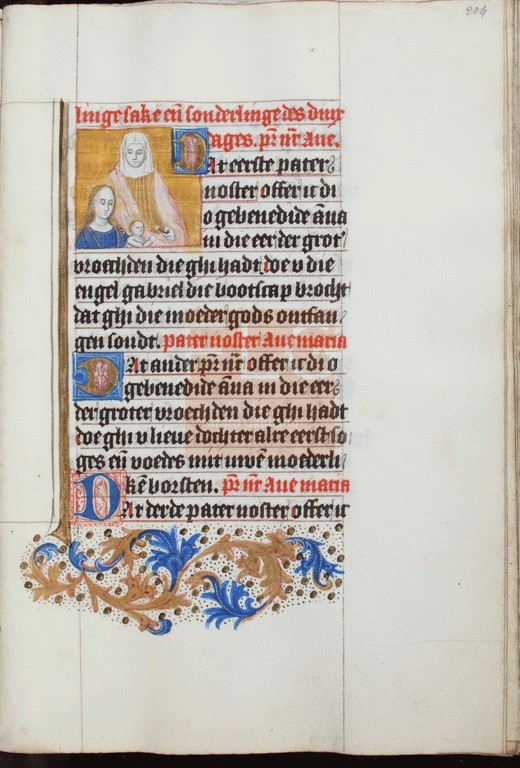 204
linge sake eñ sonderlinge des dinx
dages. pr̄ nr̄ Aue.
Dat eerste pater
noster offer ic di
o gebenedide āna
in die eer der grot
vroechden die ghi hadt doe v die
engel gabriel die bootscap brocht
dat ghi die moeder gods ontfan
gen soudt. pater noster Aue maria
Dat ander pr̄ nr̄ offer ic di o
gebenedide āna in die eer
der groter vroechden die ghi hadt
doe ghi v lieue dochter alre eerst so
ges eñ voedes mit uwē moederli
kē borsten. pr̄ nr̄ Aue maria
Dat derde pater noster offer ic